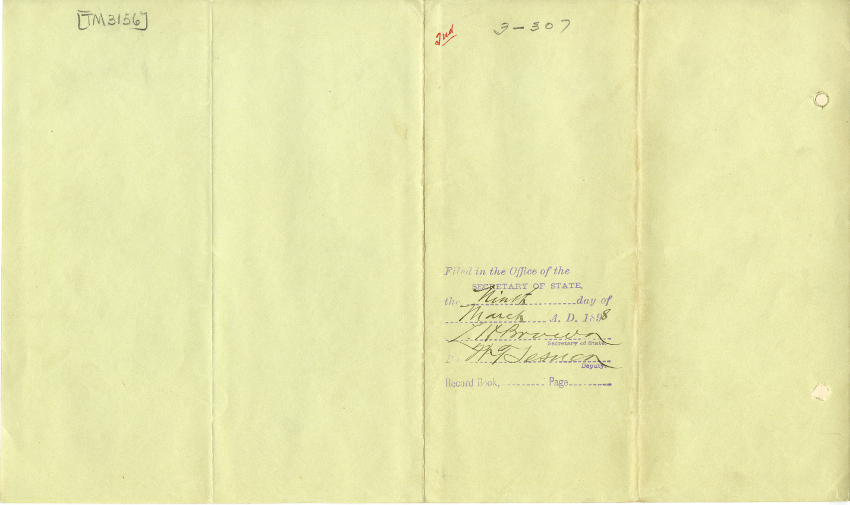 [TM3156]
3-307
Filed in the Office of the
SECRETARY OF STATE,
the Ninth day of
March A. D. 1898
L. H. Brown
Secretary of State.
Deputy.
Record Book, Page